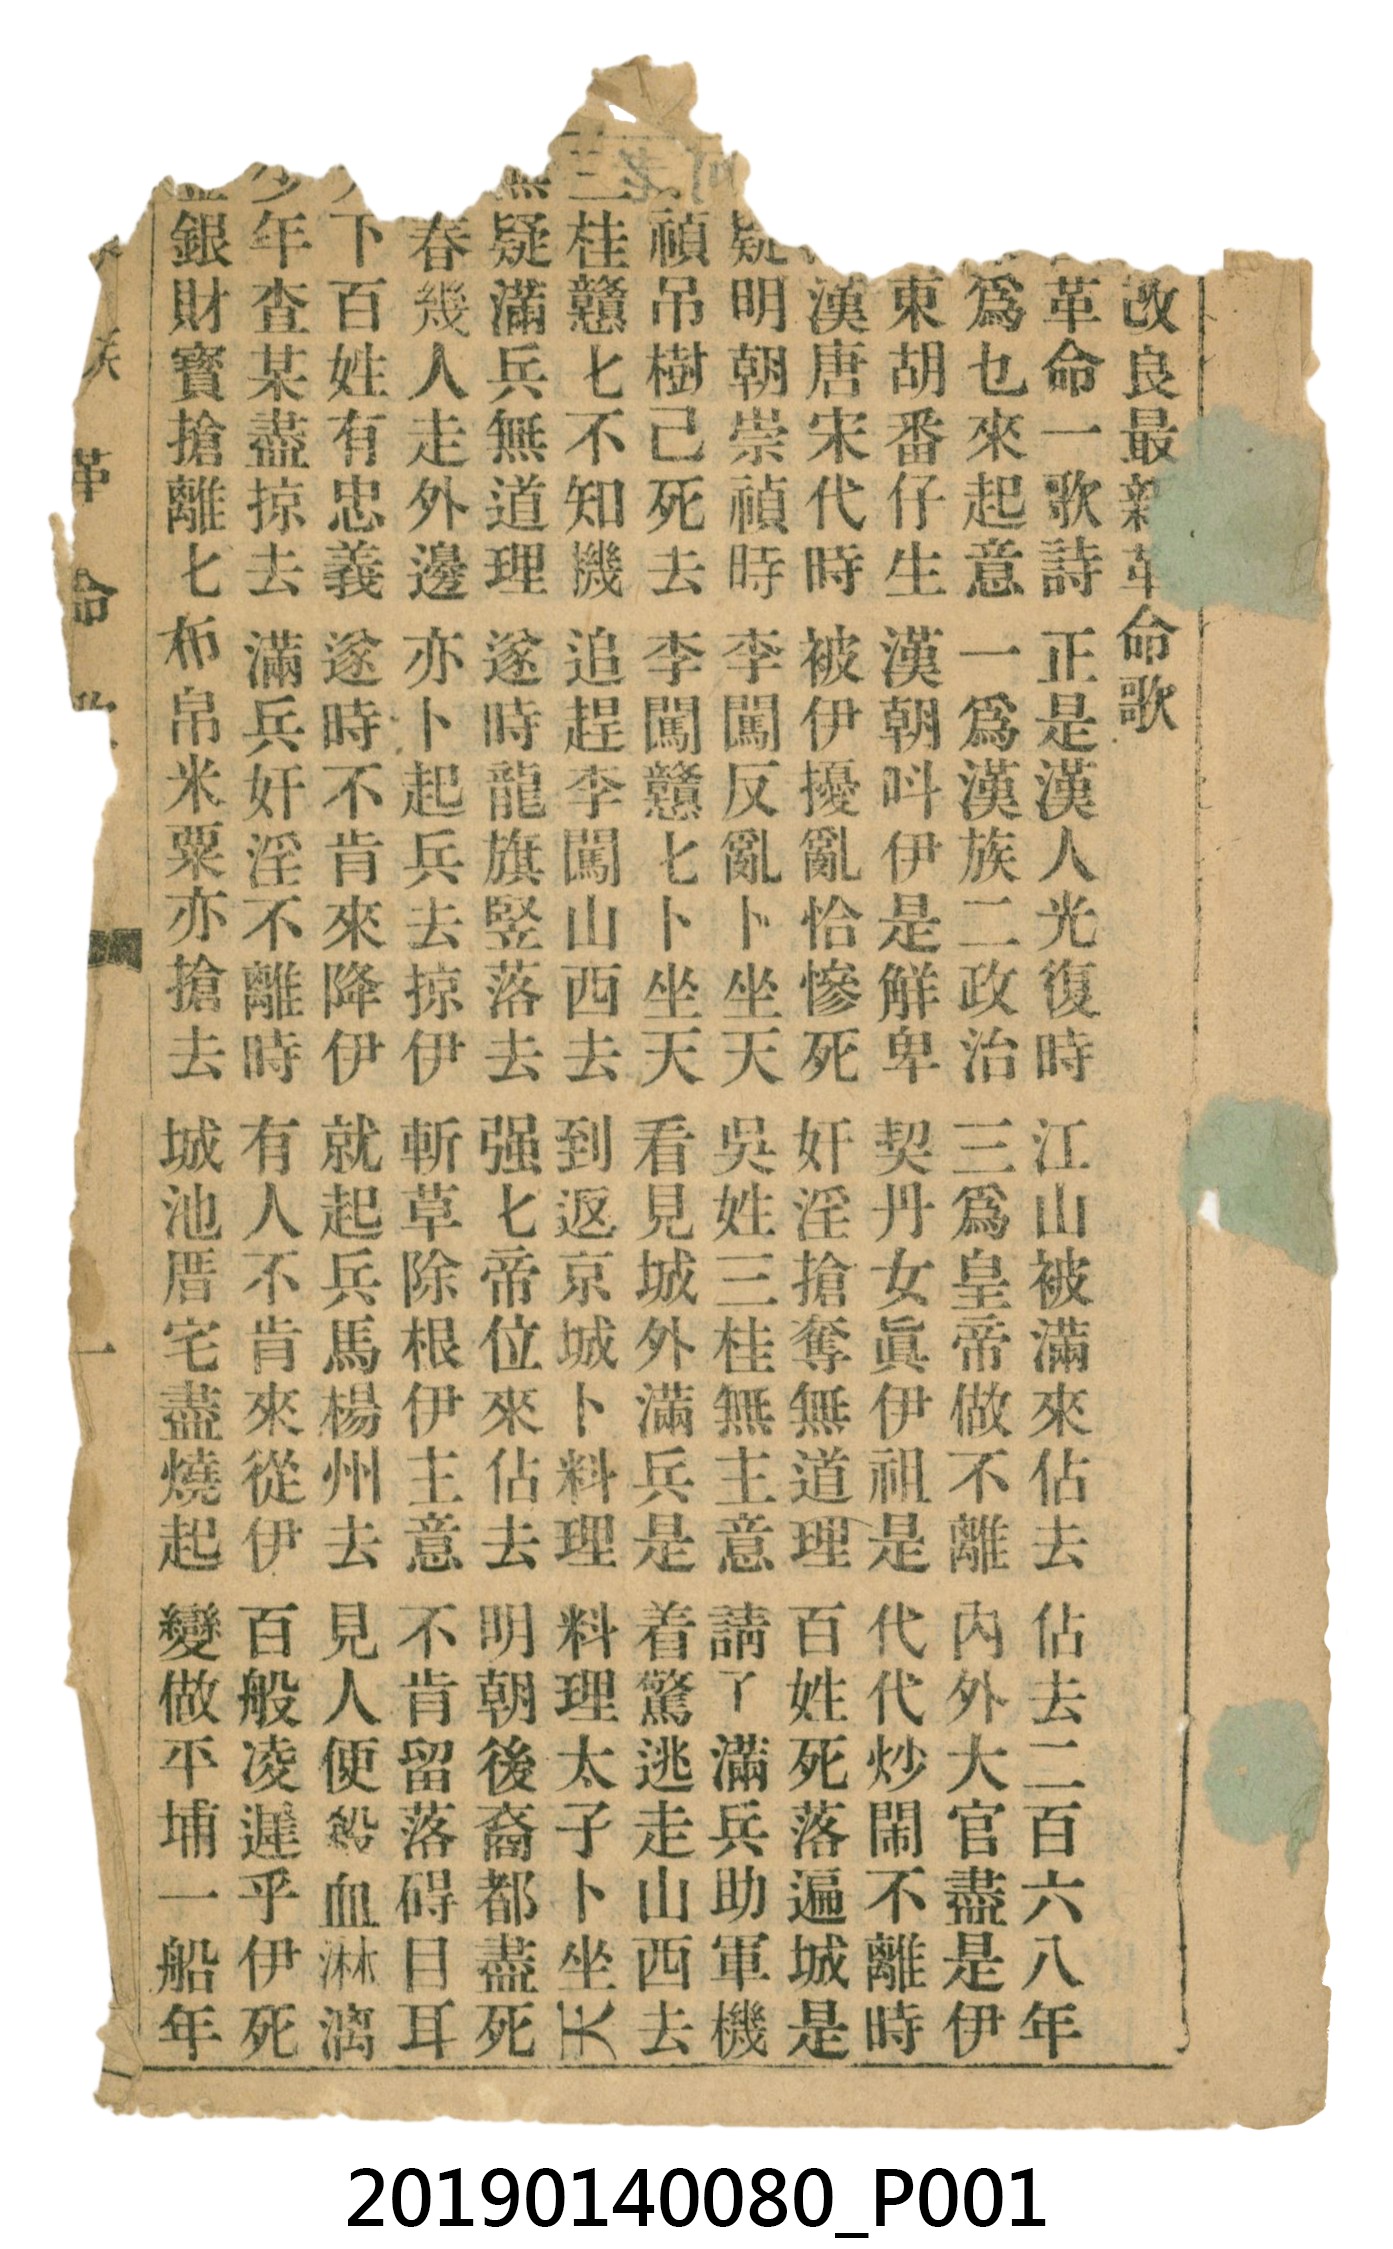 改良最新革命歌
革命一歌詩 正是漢人光復時 江山被滿來佔去 佔去二百六八年
爲乜來起意 一爲漢族二政治 三爲皇帝做不離 內外大官盡是伊
東胡番仔生 漢朝呌伊是鮮卑 契丹女眞伊祖是 代代炒鬧不離時
漢唐宋代時 被伊擾亂恰慘死 奸淫搶奪無道理 百姓死落遍城是
疑明朝崇禎時 李闖反亂卜坐天 吳姓三桂無主意 請了滿兵助軍機
禎吊樹己死去 李闖戇七卜坐天 看見城外滿兵是 着驚逃走山西去
三桂戇七不知機 追趕李闖山西去 到返京城卜料理 料理太子卜坐天
無疑滿兵無道理 遂時龍旗竪落去 强七帝位來佔去 明朝後裔都盡死
春幾人走外邊 亦卜起兵去掠伊 斬草除根伊主意 不肯留落碍目耳
下百姓有忠義 遂時不肯來降伊 就起兵馬楊州去 見人便殺血淋漓
少年查某盡掠去 滿兵奸淫不離時 有人不肯來從伊 百般凌遲乎伊死
銀財寳搶離七 布帛米粟亦搶去 城池厝宅盡燒起 變做平埔一船年
族 革 命 歌 一
20190140080_P001